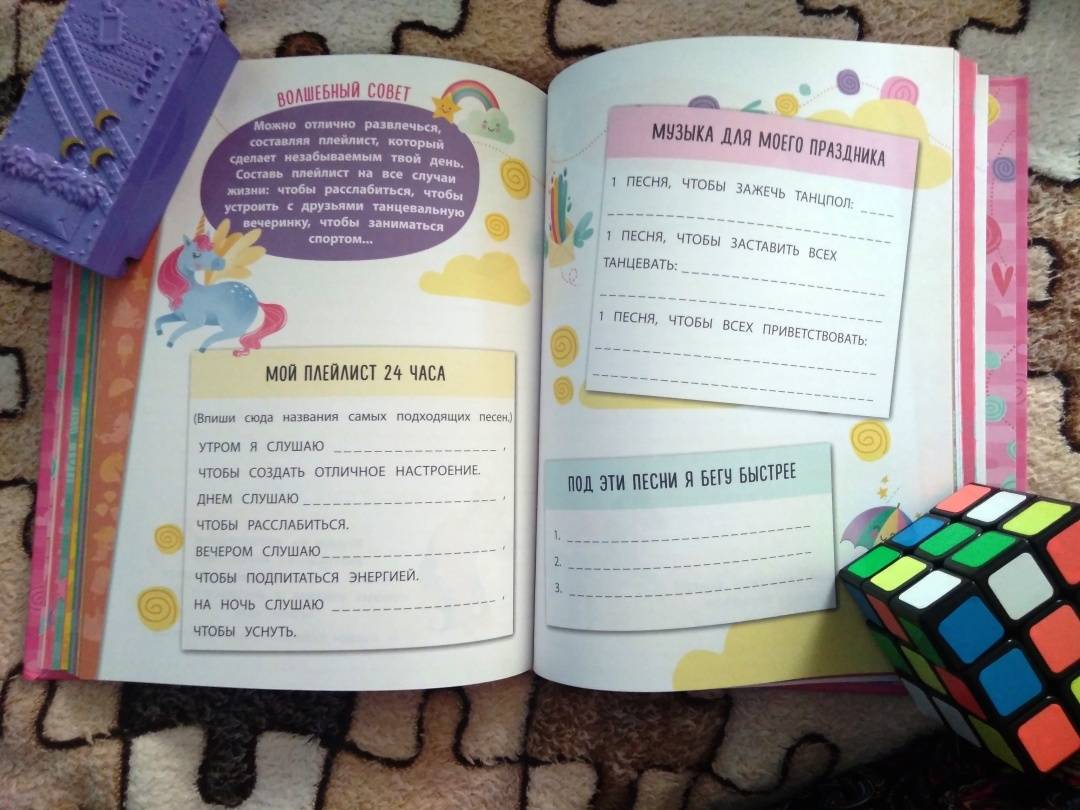 ВОЛШЕБНЫЙ СОВЕТ
Можно отлично развлечься,
составляя плейлист, который
сделает незабываемым твой день.
Составь плейлист на все случаи
жизни: чтобы расслабиться, чтобы
устроить с друзьями танцевальную
вечеринку, чтобы заниматься
спортом...
МОЙ ПЛЕЙЛИСТ 24 ЧАСА
(Впиши сюда названия самых подходящих песен.)
УТРОМ Я СЛУШАЮ _________________ ,
ЧТОБЫ СОЗДАТЬ ОТЛИЧНОЕ НАСТРОЕНИЕ.
ДНЕМ СЛУШАЮ ____________________ ,
ЧТОБЫ РАССЛАБИТЬСЯ.
ВЕЧЕРОМ СЛУШАЮ__________________ ,
ЧТОБЫ ПОДПИТАТЬСЯ ЭНЕРГИЕЙ.
НА НОЧЬ СЛУШАЮ _________________ ,
ЧТОБЫ УСНУТЬ.
МУЗЫКА ДЛЯ МОЕГО ПРАЗДНИКА
1 ПЕСНЯ, ЧТОБЫ ЗАЖЕЧЬ ТАНЦПОЛ: ____
1 ПЕСНЯ, ЧТОБЫ ЗАСТАВИТЬ ВСЕХ
ТАНЦЕВАТЬ: ____________________
1 ПЕСНЯ, ЧТОБЫ ВСЕХ ПРИВЕТСТВОВАТЬ:
ПОД ЭТИ ПЕСНИ Я БЕГУ БЫСТРЕЕ
1. ________________________
2. ________________________
3. ________________________